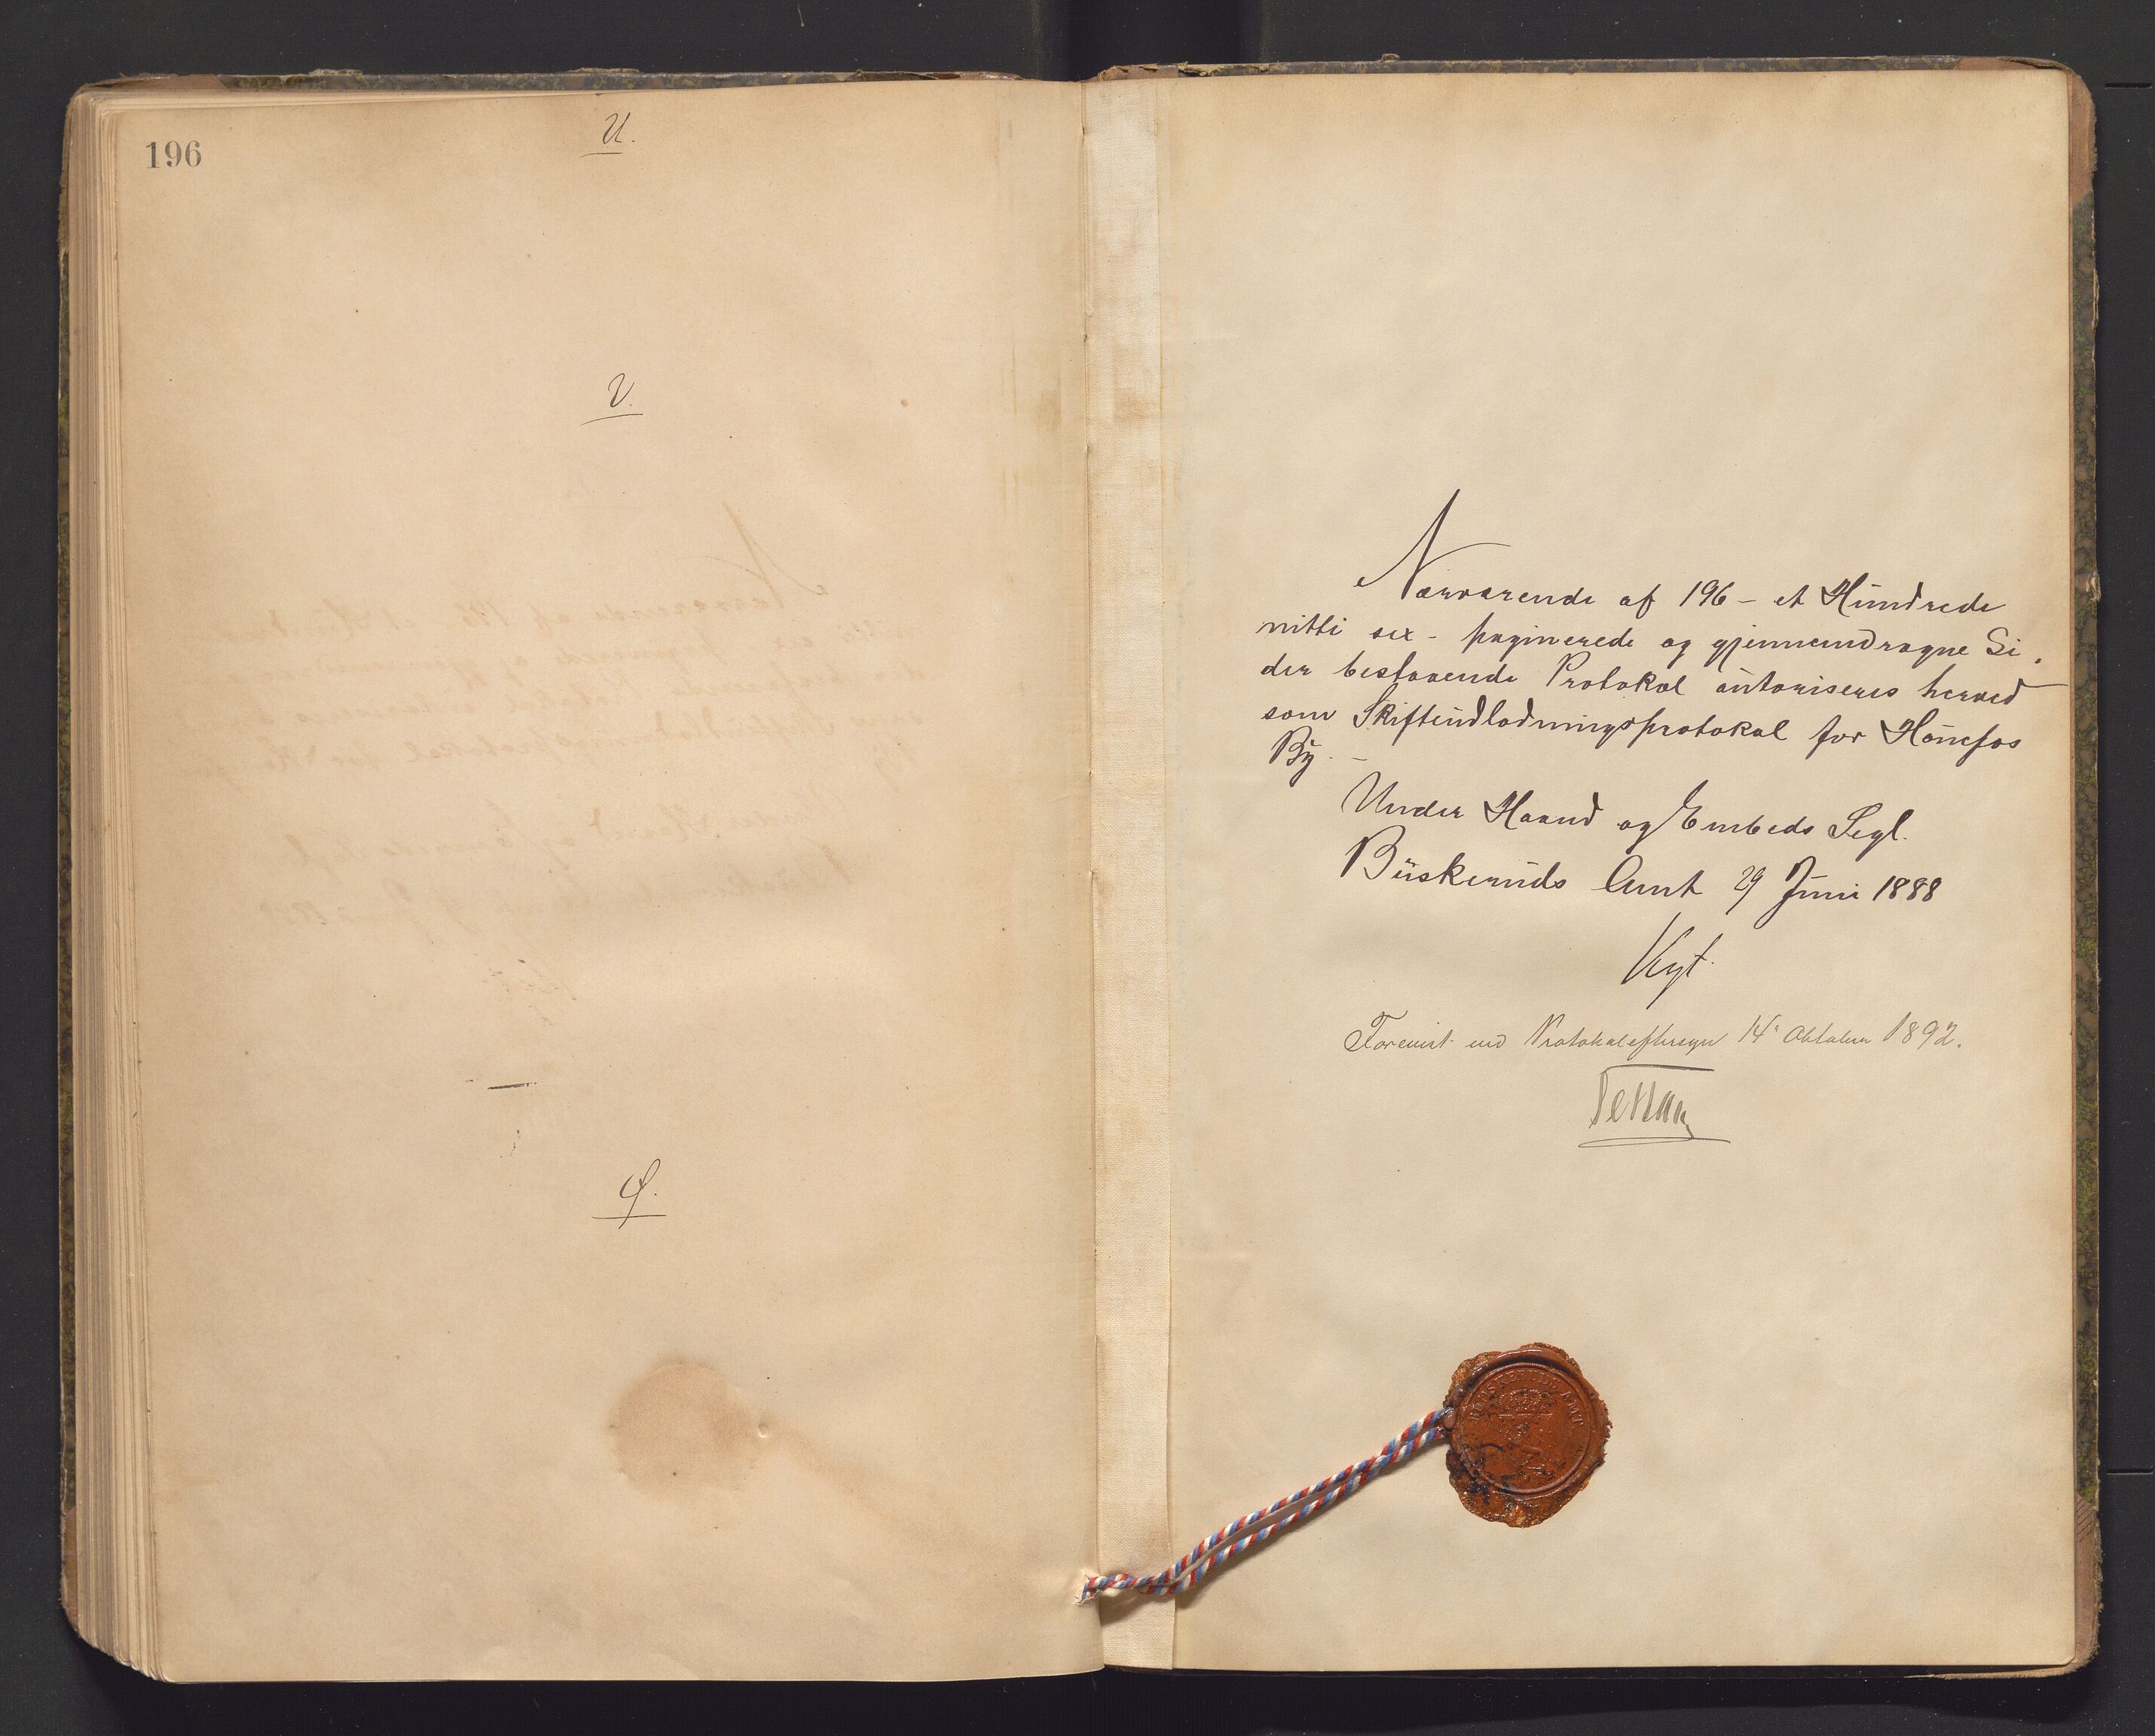 196
U.
V.
Ø.
Nærværende af 196 - et Hundrede
nitti sex - paginerede og gjennemdragne Si-
der bestaaende Protokol autoriseres herved
som Skifteudlodningsprotokol for Hønefos
By. -
Under Haand og Embeds Segl.
Buskeruds Amt 29 Juni 1888
Forevist ved Protokoleftersyn 14de Oktober 1892.
BUSKERUDS AMT